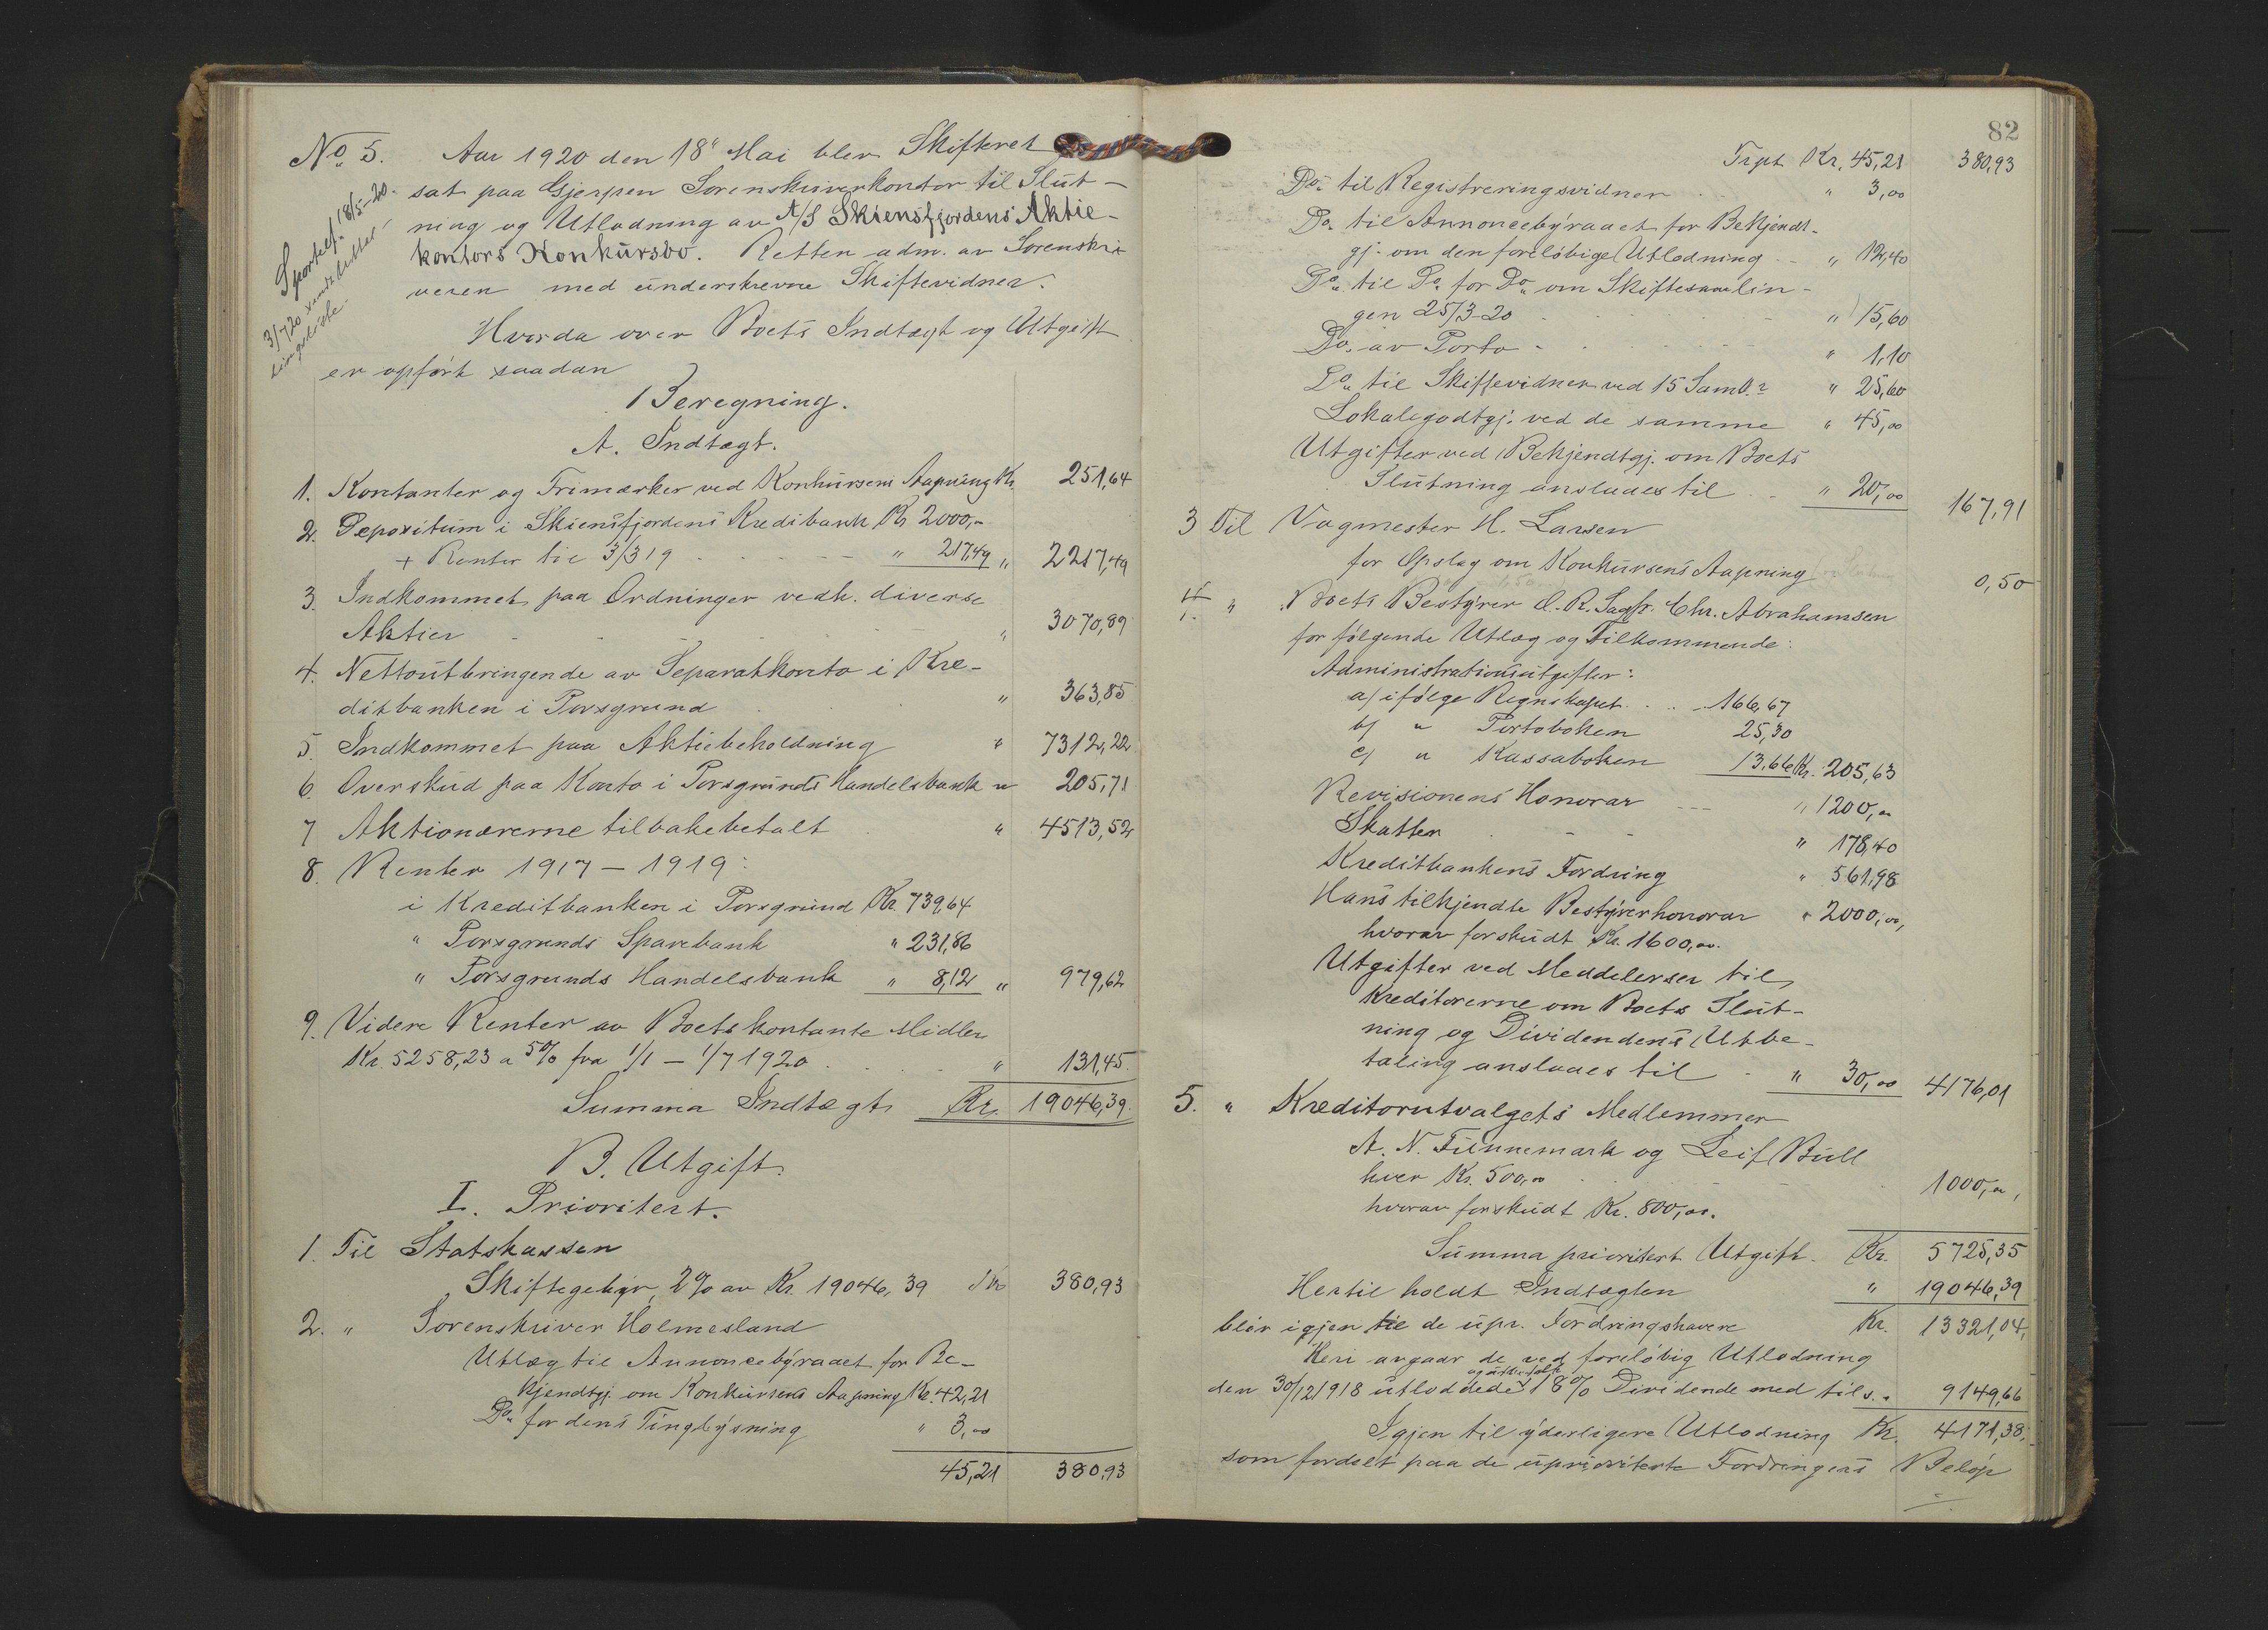 No 5. Aar 1920 den 18' Mai blev Skifteret
sat paa Gjerpen Sorenskriverkontor til Slut-
ning og Utlodning av A/S Skiensfjordens Aktie-
kontors Konkursbo. Retten adm. av Sorenskri-
veren med underskrevne Skiftevidner.
Sportelf. 18/5-20.
3/7 20
Hvorda over Boets Indtægt og Utgift
er opført saadan
Beregning.
A. Indtægt.
1. Kontanter og Frimærker ved Konkursens Aapning Kr. 251,64
2. Depositum i Skiensfjordens Kredibank Kr 2000,-
+ Renter til 3/3 19 " 217,49 " 2217,49
3. Indkommet paa Ordninger vedk. diverse
Aktier " 3070,89
4. Nettoutbringende av Separatkonto i Kre-
ditbanken i Porsgrund " 363,85
5. Indkommet paa Aktiebeholdning " 7312,22
6. Overskud paa Konto i Porsgrunds Handelsbank " 205,71
7 Aktionærerne tilbakebetalt " 4513,52
8. Renter 1917 – 1919:
i Kreditbanken i Porsgrund Kr. 739,64
" Porsgrunds Sparebank " 231,86
" Porsgrunds Handelsbank " 8,12 " 979,62
9. Videre Renter av Boets kontante Midler
Kr. 5258,23 a 5% fra 1/1 – 1/7 1920 " 131,45.
Summa Indtægt Kr. 19046,39.
B. Utgift.
I. Prioritert.
1. Til Statskassen
Skiftegebyr, 2% av Kr. 19046,39 Kr 380,93
2. " Sorenskriver Holmesland
Utlæg til Annoncebyraaet for Be-
kjendtgj. om Konkursens Aapning Kr. 42,21
Do. for dens Tinglysning " 3,00
45,21 380,93
82
Trpt Kr. 45,21 380,93
Do. til Registreringsvidner " 3,00
Do. til Annoncebyraaet for Bekjendt-
gj. om den foreløbige Utlodning " 12,40
Do. til Do. for Do. om Skiftesamlin-
gen 25/3-20 " 15,60
Do. av Porto " 1,10
Do. til Skiftevidner ved 15 Saml. " 25,60
Lokalegodtgj. ved de samme " 45,00
Utgifter ved Bekjendtgj. om Boets
Slutning anslaaes til " 20,00 167,91
3 Til Vagmester H. Larsen
for Opslag om Konkursens Aapning 0,50
4. " Boets Bestyrer O. R. Sagfr. Chr. Abrahamsen
for følgende Utlæg og Tilkommende:
Administrationsutgifter:
a/ ifølge Regnskapet 166,67
b/ " Portoboken 25,30
c/ " Kassaboken 13,66 Kr. 205,63
Revisionens Honorar " 1200,00
Skatten " 178,40
Kreditbankens Fordring " 561,98
Hans tilkjendte Bestyrerhonorar " 2000,00,
hvorav forskudt Kr. 1600,00.
Utgifter ved Meddelelser til
Kreditorerne om Boets Slut-
ning og Dividendens Utbe-
taling anslaaes til " 30,00 4176,01
5. " Kreditorutvalgets Medlemmer
A. N. Finnemark og Leif Bull
hver Kr. 500,00 1000,00,
hvorav forskudt Kr. 800,00.
Summa prioritert Utgift. Kr. 5725,35
Hertil holdt Indtægten " 19046,39
blir igjen til de upr. Fordringshavere Kr. 13321,04,
Heri avgaar de ved foreløbig Utlodning
og utbetalte
den 30/12 1918 utloddede 18% Dividende med tils. " 9149,66
Igjen til yderligere Utlodning Kr. 4171,38,
som fordelt paa de uprioriterte Fordringers Beløp